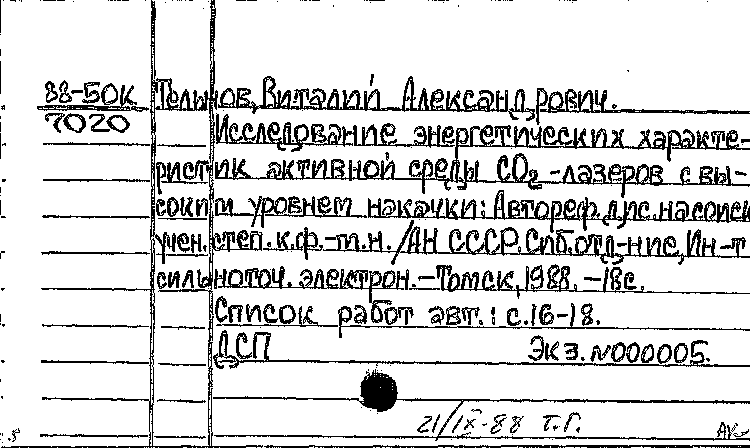 88-50К Тельнов, Виталий Александрович.
7020 Исследование энергетических характе-
ристик активной среды CO2-лазеров с вы-
соким уровнем накачки: Автореф. дис. на соиск
учен. степ. к.ф.-м.н. / АН СССР. Сиб. отд-ние, Ин-т
сильноточ. электрон. – Томск, 1988. – 18с.
Список работ авт.: с.16-18.
ДСП Экз. №000005.
21/IX-88 Т.Г.